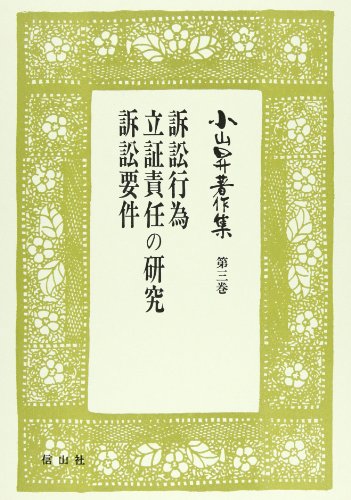 小山昇著作集 第三巻
訴訟行為
立証責任の研究
訴訟要件
信山社